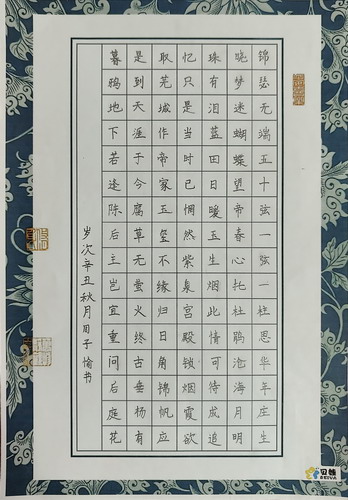 锦瑟无端五十弦一弦一柱思华年庄生
晓梦迷蝴蝶望帝春心托杜鹃沧海月明
珠有泪蓝田日暖玉生烟此情可待成追
忆只是当时已惘然紫泉宫殿锁烟霞欲
取芜城作帝家玉玺不缘归日角锦帆应
是到天涯于今腐草无萤火终古垂杨有
暮鸦地下若逢陈后主岂宜重问后庭花
岁次辛丑秋月子愉书